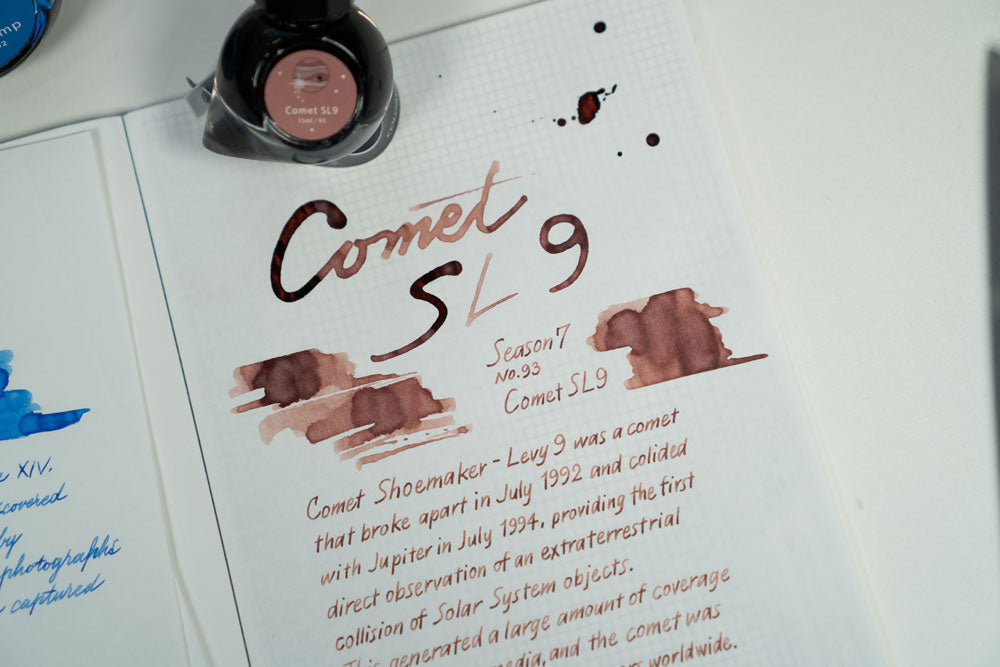 mp
Comet SL9
15ml / 93
Comet
SL 9
Season 7
No.93
Comet SL9
Comet Shoemaker - Levy 9 was a comet
that broke apart in July 1992 and colided
with Jupiter in July 1994, providing the first
direct observation of an extraterrestrial
collision of Solar System objects.
This generated a large amount of coverage
media, and the comet was
worldwide.
XIV.
scovered
by
photographs
captured